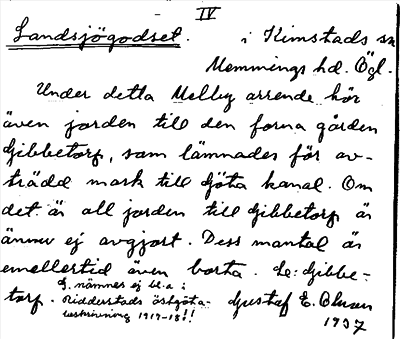 IV
Landsjögodset. i Kimstads sn
Memmings hd. Ögl.
Under detta Melby arrende hör
även jorden till den forna gården
Gibbetorp, som lämnades för av-
trädd mark till Göta kanal. Om
det är all jorden till Gibbetorp är
ännu ej avgjort. Dess mantal är
emellertid även borta. Se: Gibbe-
torp. Gustaf E. Ohman
G. nämnes ej bl.a i
Ridderstads östgöta-
beskrivning 1917-18!!
1937